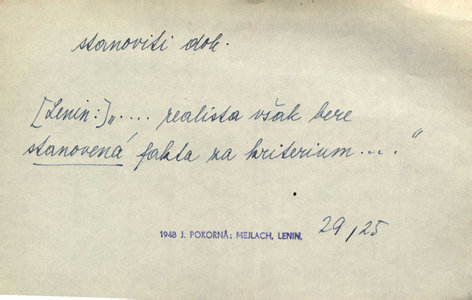 stanoviti dok.
[Lenin:] „.... realista však bere
stanovená fakta za kriterium...."
1948 J. POKORNÁ: MEJLACH, LENIN, 29/25